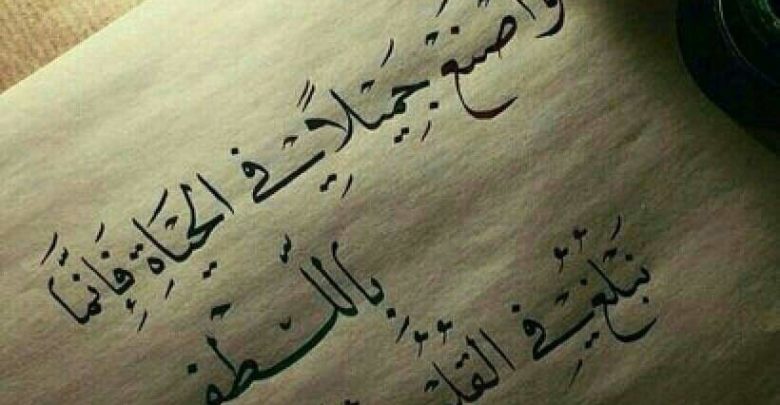 وَاصْنَعْ جَمِيلاً في الحَيَاةِ فَإِنَّمَا
بِاللُّطْفِ
تَبْلُغُ في